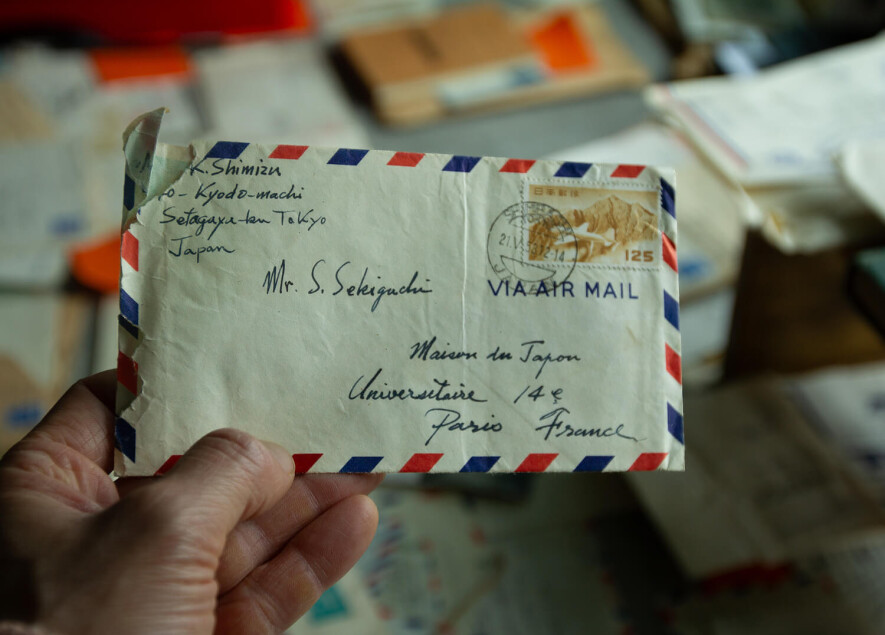 K. Shimizu
Kyodo-machi
Setagaya-ku Tokyo
Japan
日本郵便
125
VIA AIR MAIL
Mr. S. Sekiguchi
Maison du Japon
Universitaire 14e
Paris France